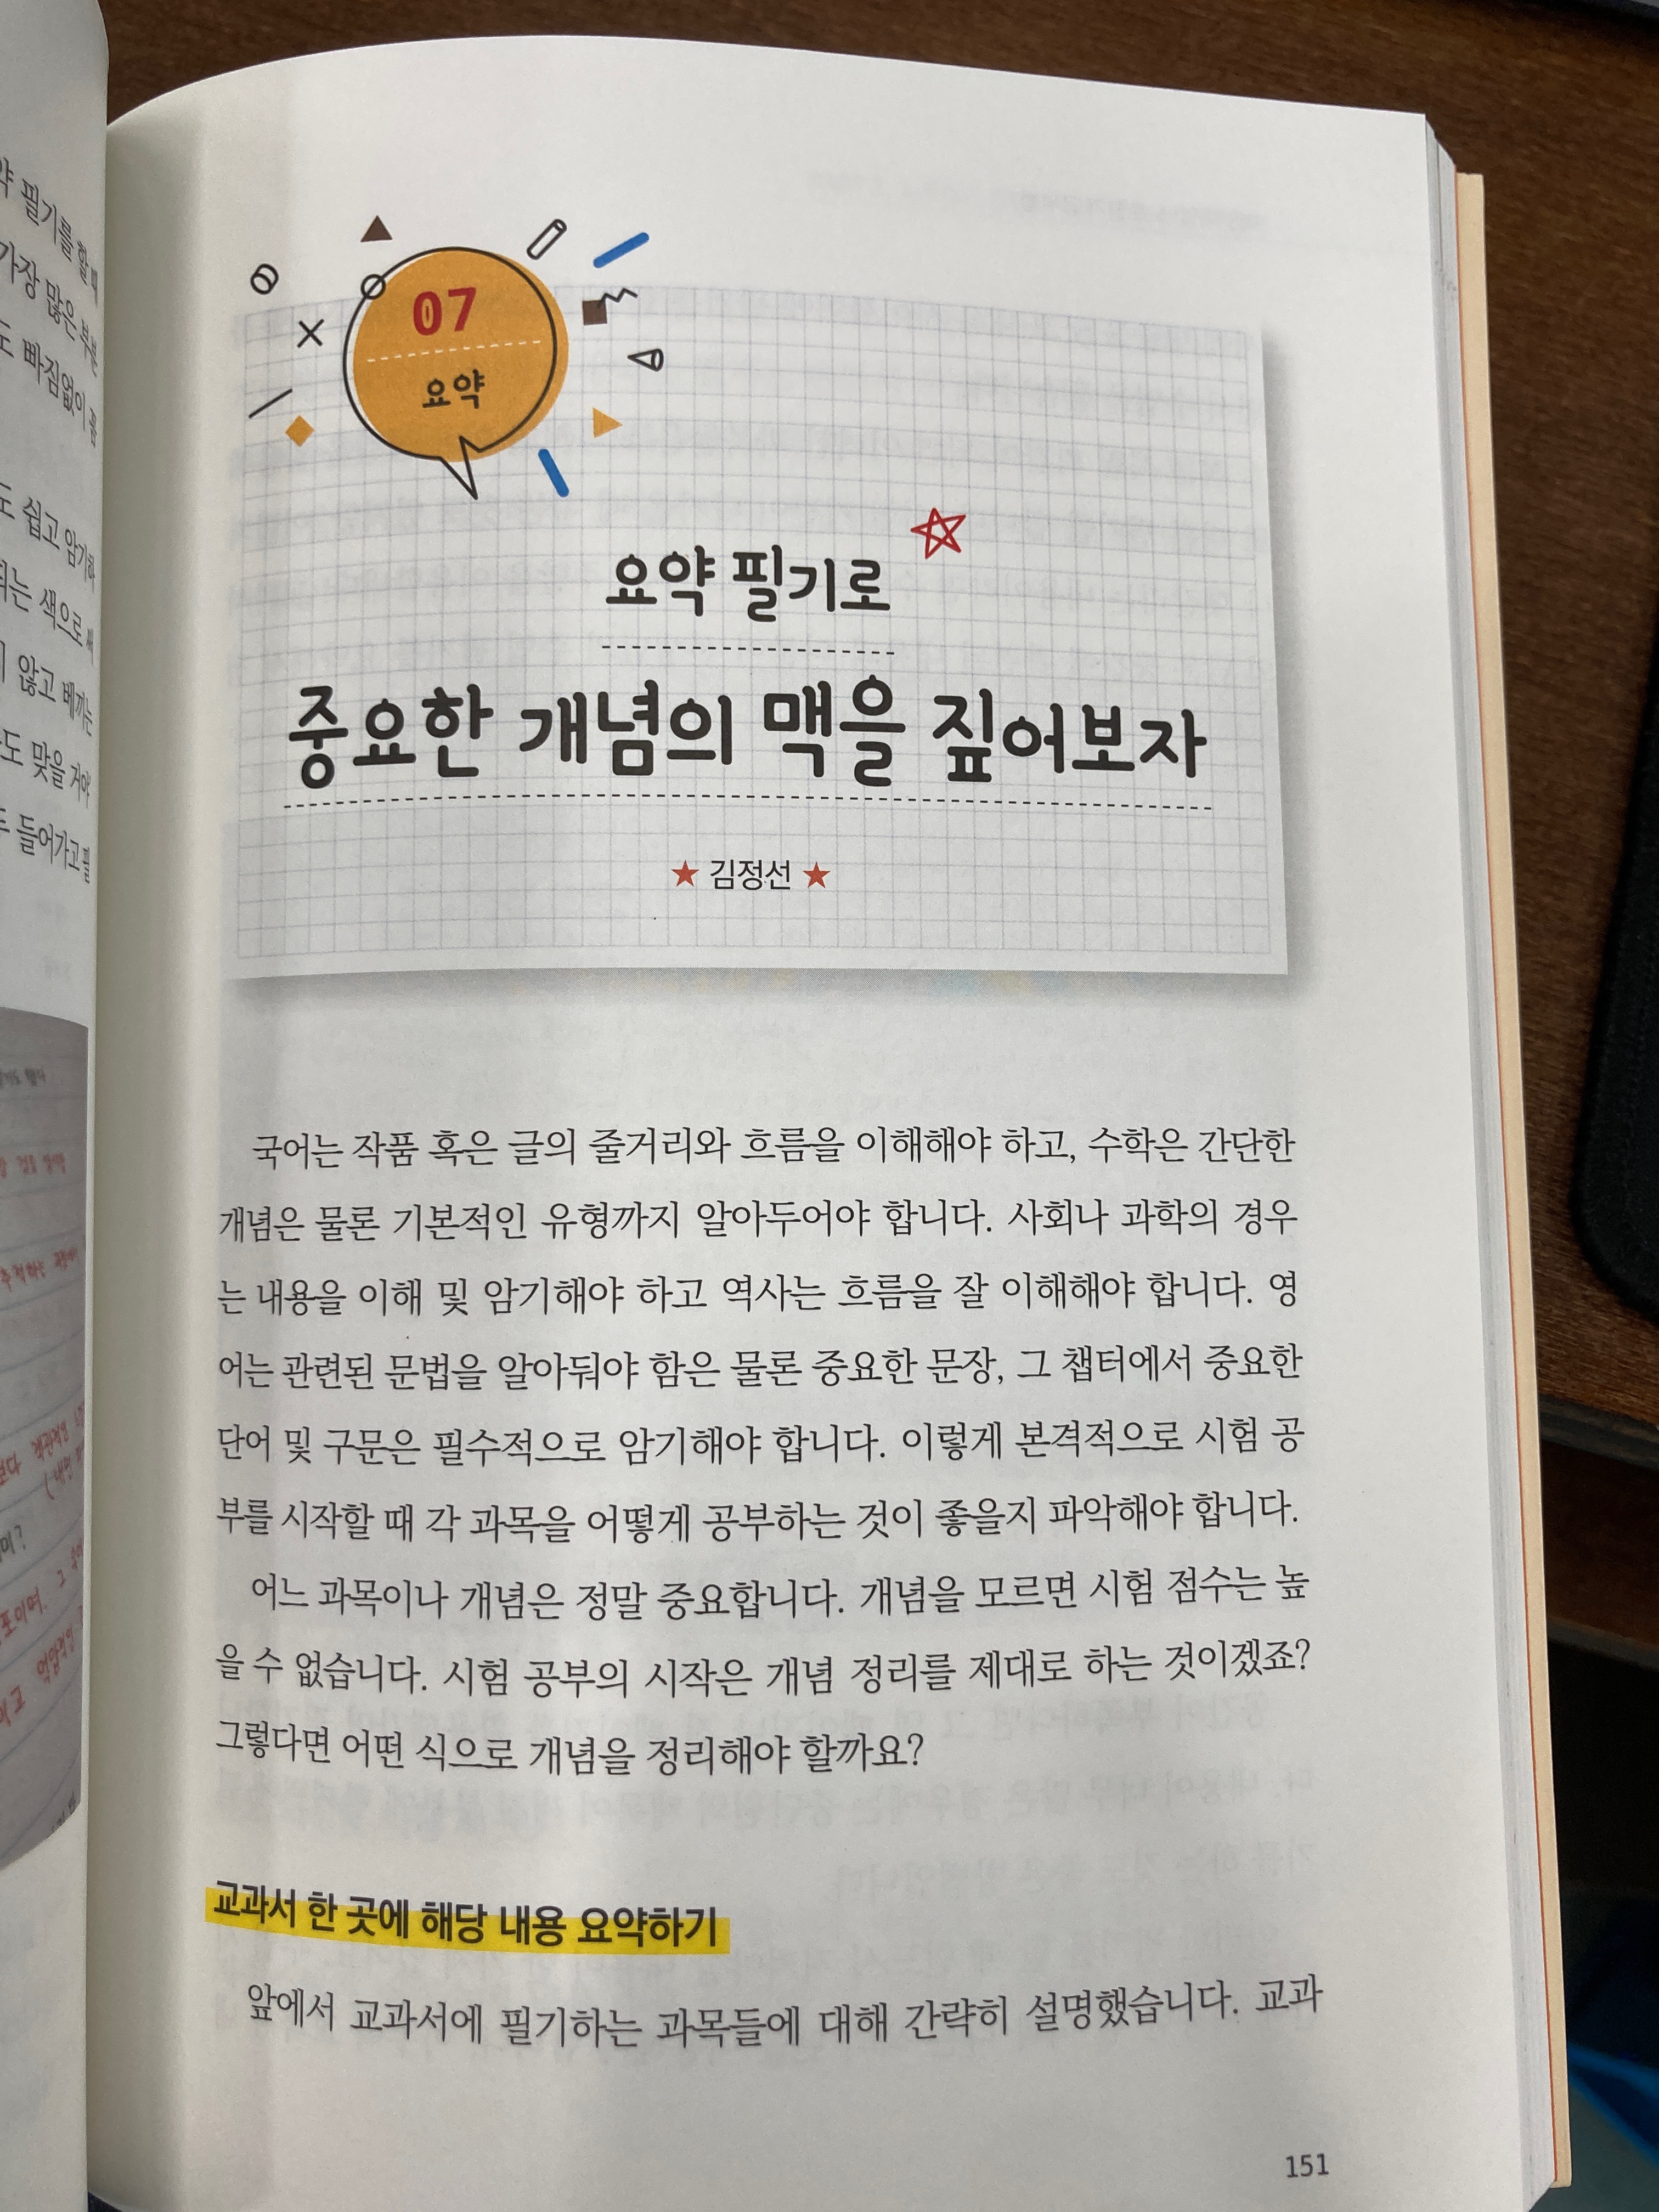 필기를 할 때
가장 많은 부분
빠짐없이
쉽고 암기하
색으로
않고 베끼는
맞을 거야
들어가고
07
요약
요약 필기로
중요한 개념의 맥을 짚어보자
★ 김정선 ★
국어는 작품 혹은 글의 줄거리와 흐름을 이해해야 하고, 수학은 간단한
개념은 물론 기본적인 유형까지 알아두어야 합니다. 사회나 과학의 경우
는 내용을 이해 및 암기해야 하고 역사는 흐름을 잘 이해해야 합니다. 영
어는 관련된 문법을 알아둬야 함은 물론 중요한 문장, 그 챕터에서 중요한
단어 및 구문은 필수적으로 암기해야 합니다. 이렇게 본격적으로 시험 공
부를 시작할 때 각 과목을 어떻게 공부하는 것이 좋을지 파악해야 합니다.
어느 과목이나 개념은 정말 중요합니다. 개념을 모르면 시험 점수는 높
을 수 없습니다. 시험 공부의 시작은 개념 정리를 제대로 하는 것이겠죠?
그렇다면 어떤 식으로 개념을 정리해야 할까요?
교과서 한 곳에 해당 내용 요약하기
앞에서 교과서에 필기하는 과목들에 대해 간략히 설명했습니다. 교과
151